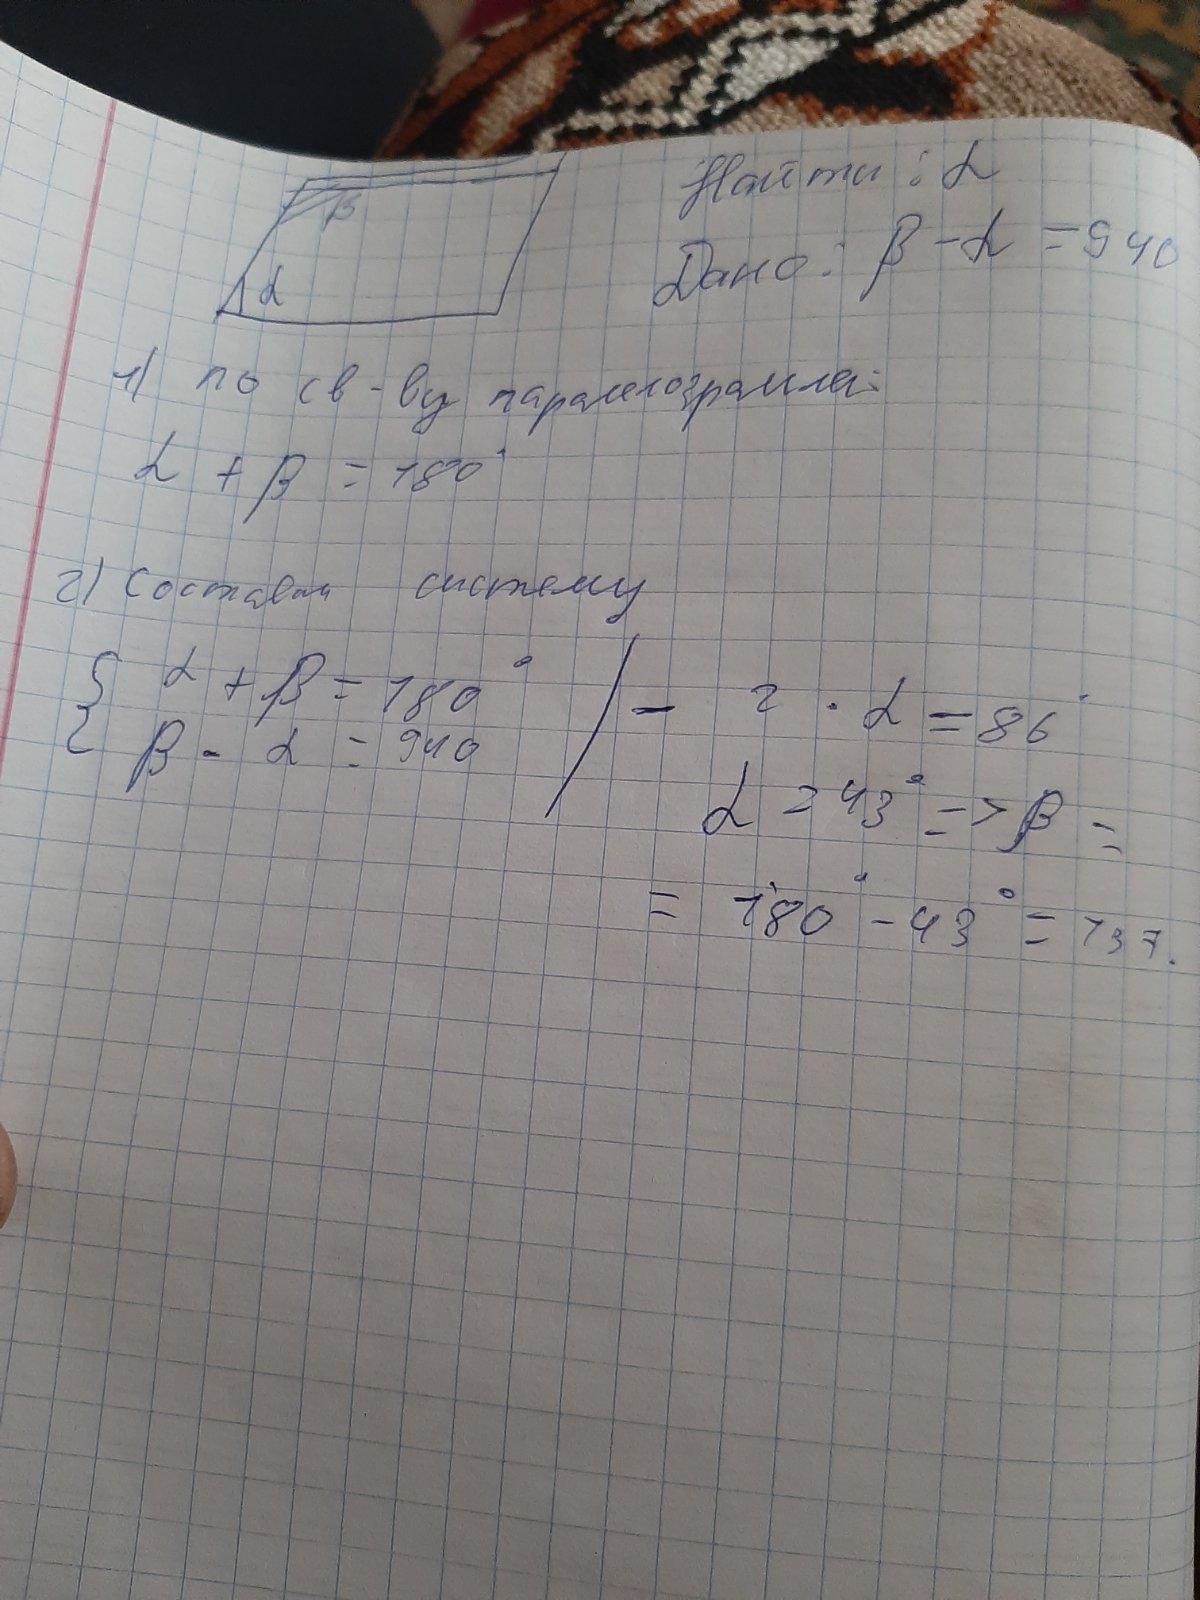 β
α
Найти : α
Дано: β - α = 940
1) по св-ву параллелограмма:
α + β = 180°
2) Составим систему
{ α + β = 180°
β - α = 940
- 2 · α = 86°
α = 43° => β =
= 180° - 43° = 137.